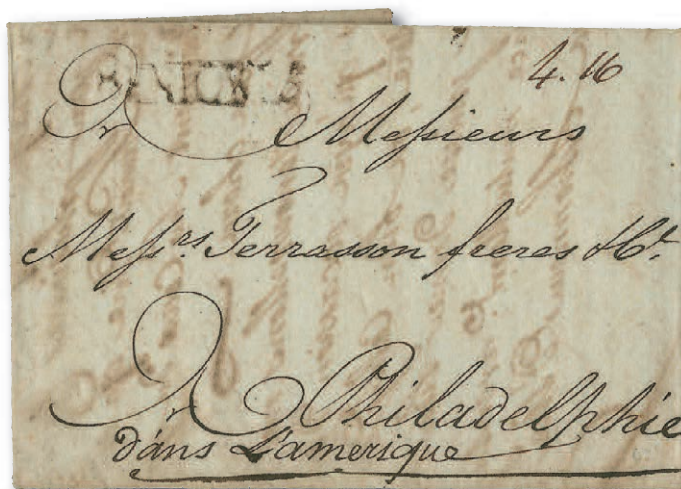 4.16
A Messieurs
Messrs. Terrasson freres &
A Philadelphie
dans L'amerique